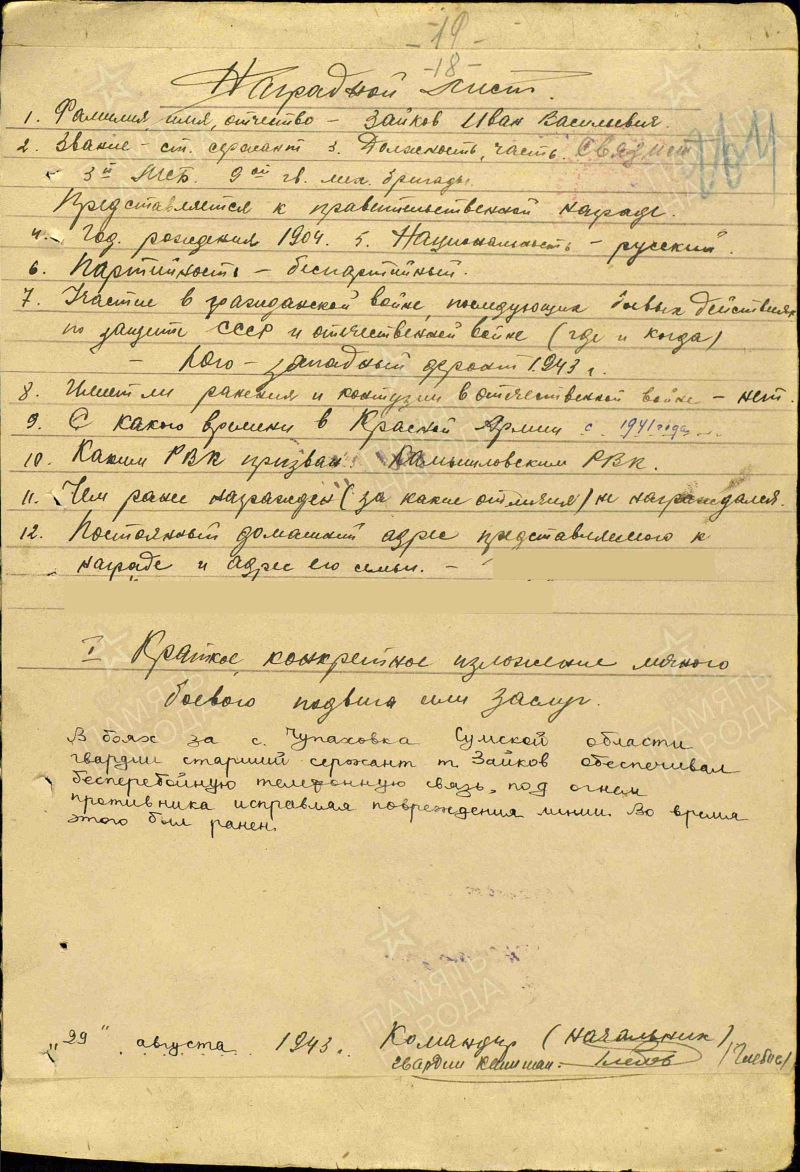 -19-
-18-
Наградной лист.
1. Фамилия, имя, отчество – Зайков Иван Васильевич.
2. Звание – ст. сержант 3. Должность, часть. Связист
3й МСБ. 9ой гв. мех. бригады.
264
Представляется к правительственной награде.
4. Год рождения 1904. 5. Национальность – русский.
6. Партийность – беспартийный.
7. Участие в гражданской войне, последующих боевых действиях
по защите СССР и отечественной войне (где и когда)
– Юго-западный фронт 1943 г.
8. Имеет ли ранения и контузии в отечественной войне – нет.
9. С какого времени в Красной Армии с 1941 года
10. Каким РВК призван. Камышловским РВК.
11. Чем ранее награжден (за какие отличия) не награждался.
12. Постоянный домашний адрес представляемого к
награде и адрес его семьи. –
I Краткое, конкретное изложение личного
боевого подвига или заслуг.
В боях за с. Чупаховка Сумской области
гвардии старший сержант т. Зайков обеспечивал
бесперебойную телефонную связь, под огнем
противника исправляя повреждения линии. Во время
этого был ранен.
"29" августа 1943. Командир (начальник)
гвардии капитан. Глебов /Глебов/
ПАМЯТЬ НАРОДА
ПАМЯТЬ НАРОДА
ПАМЯТЬ НАРОДА